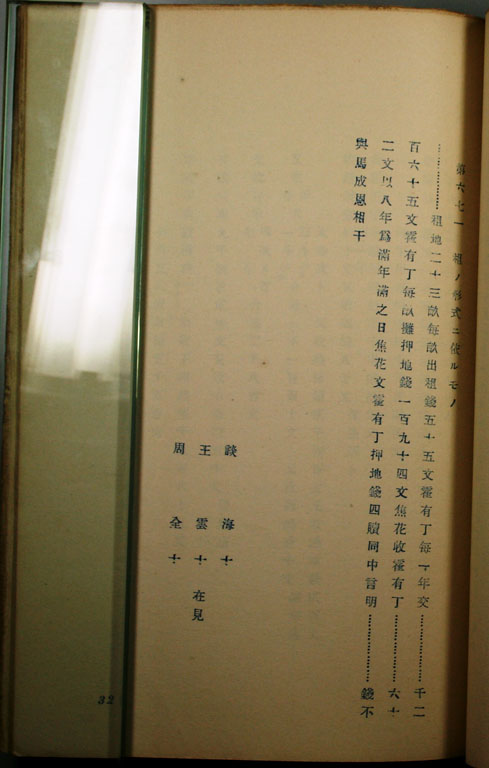 第六七一 租ノ形式ニ依ルモノ
……………租地二十三畝每畝出租錢五十五文霍有丁每十年交……………千二
百六十五文霍有丁每畝攤押地錢一百九十四文焦花收霍有丁……………六十
二文以八年爲滿年滿之日焦花文霍有丁押地錢四贖同中言明……………錢不
與馬成恩相干
談 海 十
王 雲 十 在見
周 全 十
32